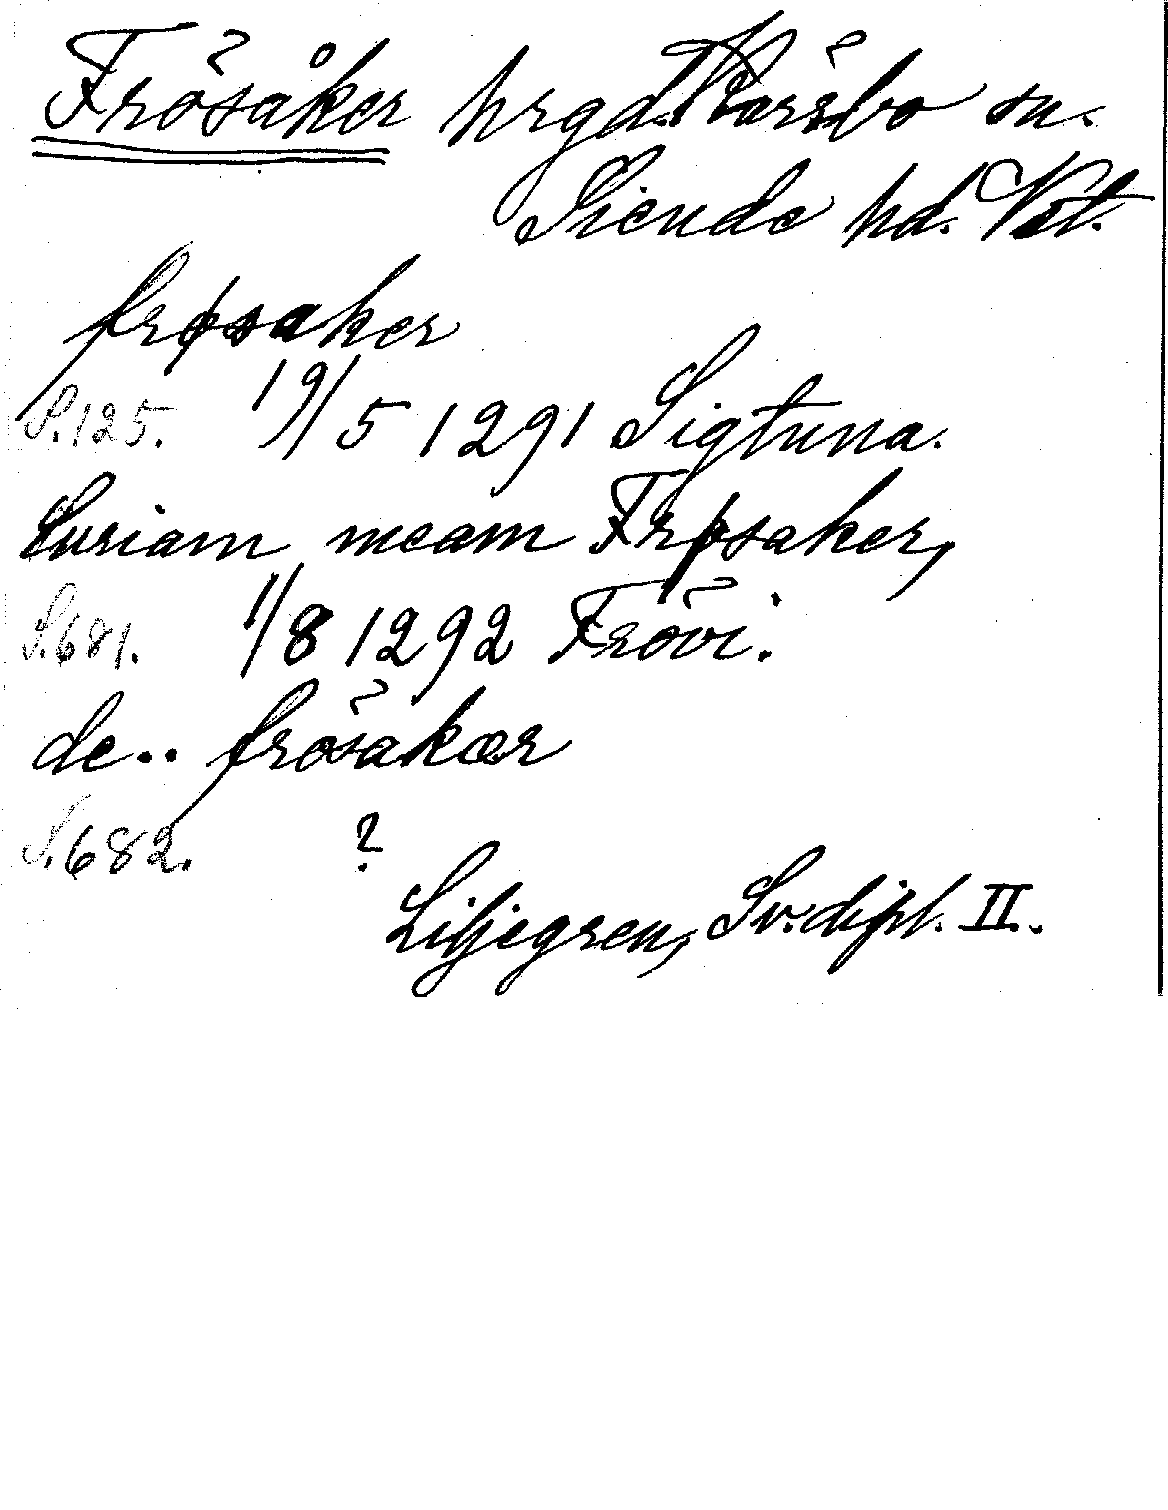 Frösåker hrgd. Kärrbo sn.
Siende hd. Vst.
frøsaker
S.125. 19/5 1291 Sigtuna.
Curiam meam Frøsaker,
S.681. 1/8 1292 Frövi.
de.. frösakær
S.682. ?
Liljegren, Sv. dipl. II.